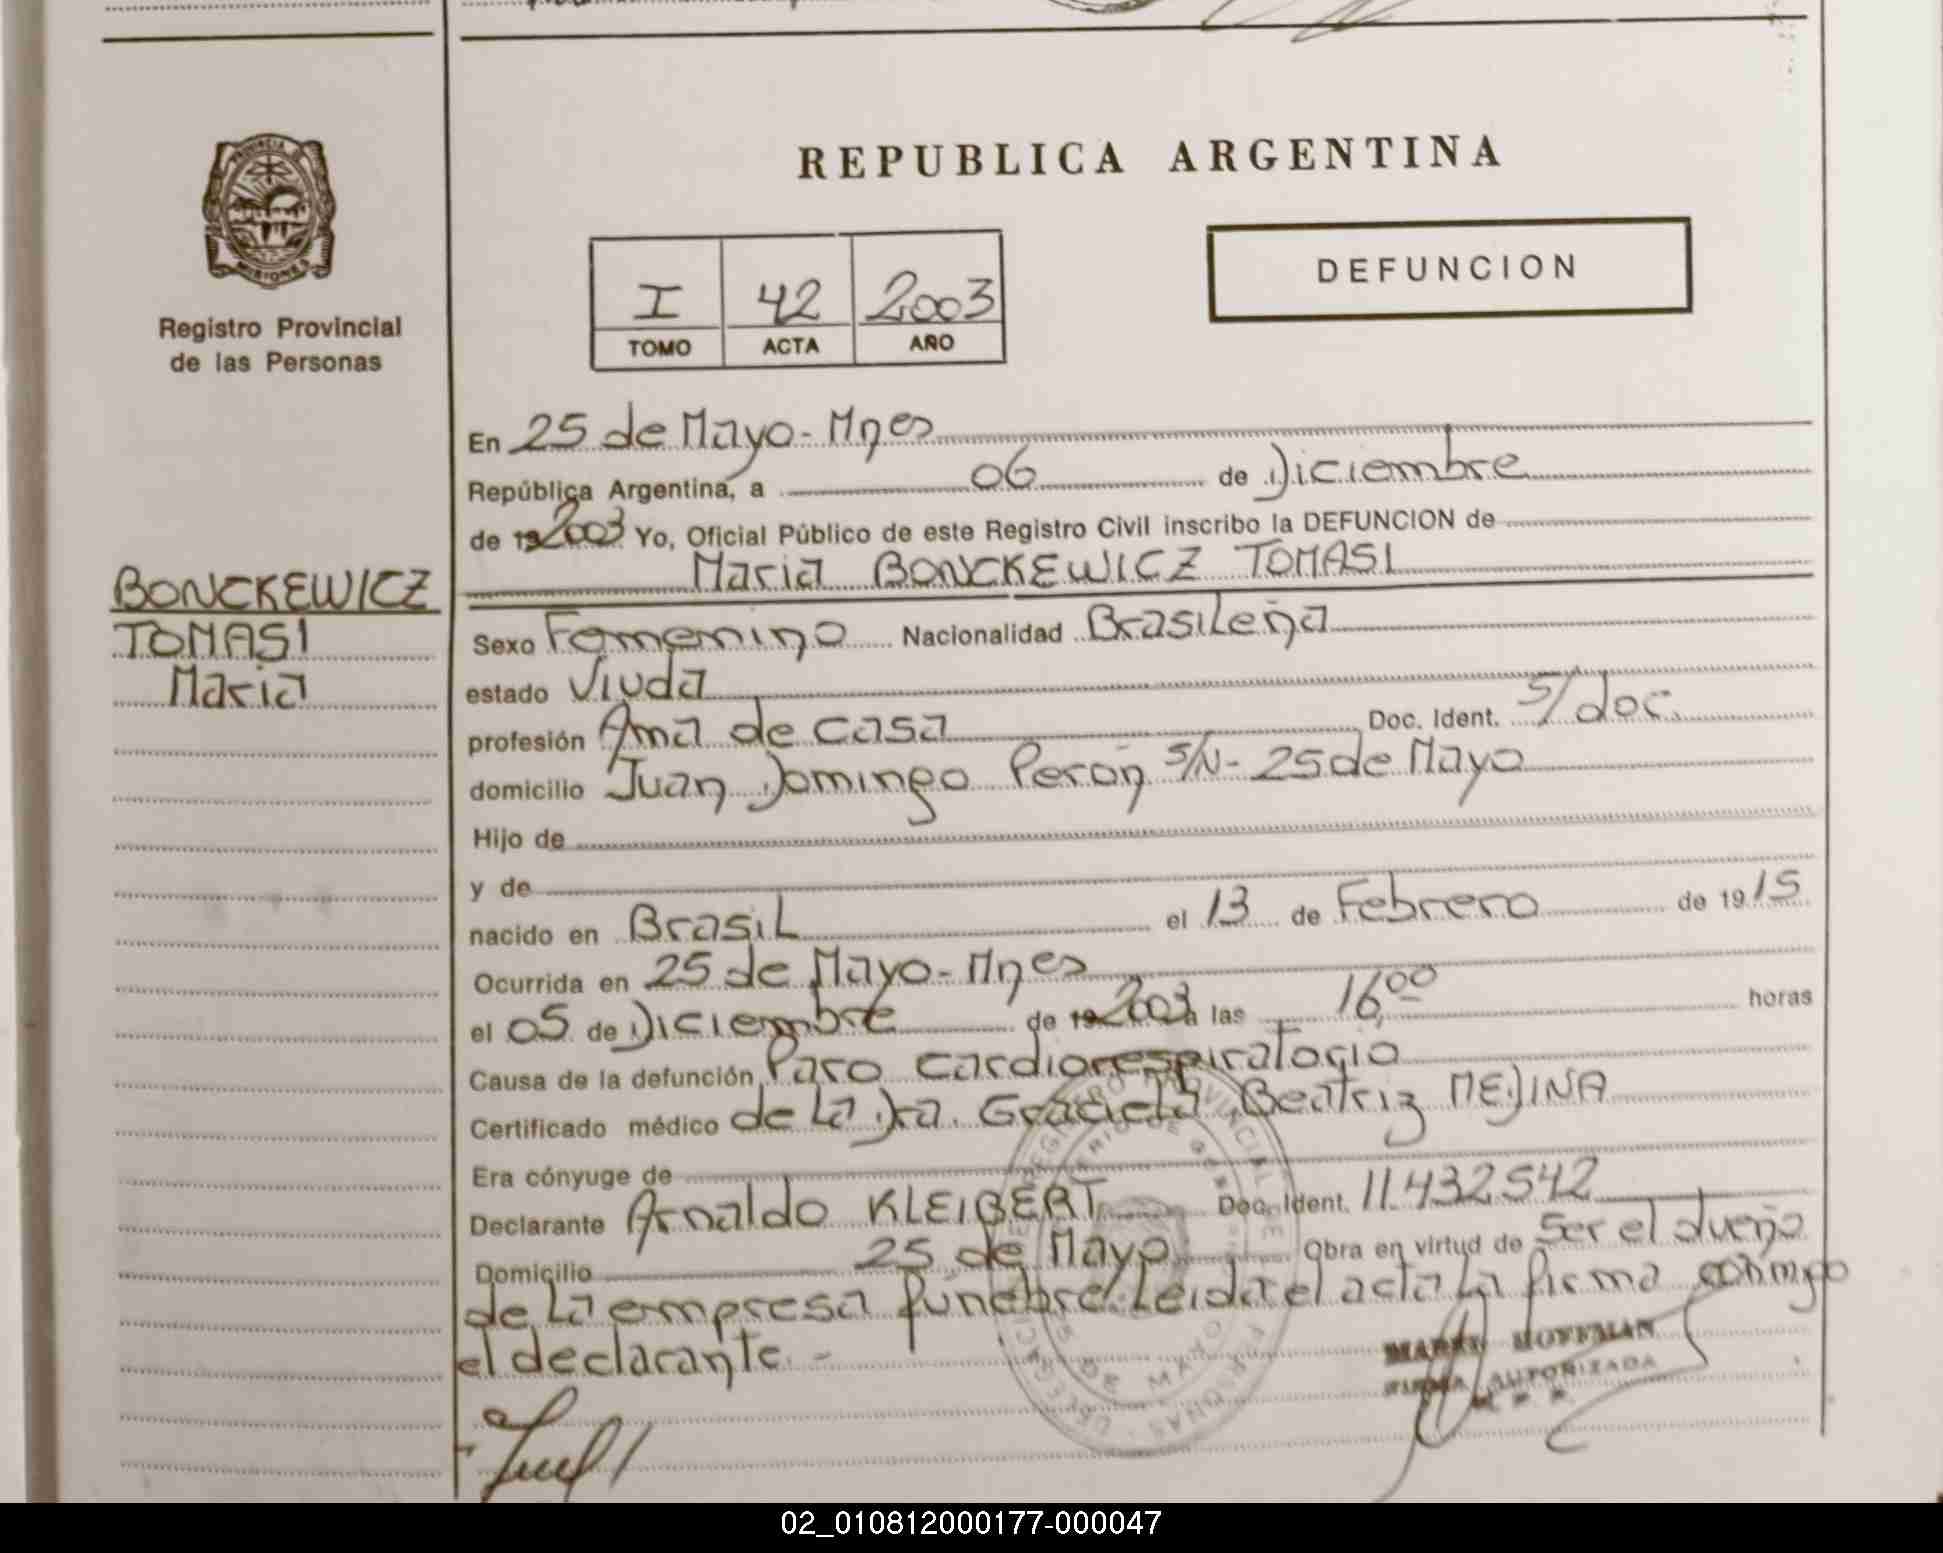 REPUBLICA ARGENTINA
PROVINCIA DE
MISIONES
Registro Provincial
de las Personas
I 42 2003
TOMO ACTA AÑO
DEFUNCION
En 25 de Mayo - Mnes
República Argentina, a 06 de Diciembre
de 192003 Yo, Oficial Público de este Registro Civil inscribo la DEFUNCION de
Maria BONCKEWICZ TOMASI
BONCKEWICZ
TOMASI
Maria
Sexo Femenino Nacionalidad Brasileña
estado Viuda
profesión Ama de casa Doc. Ident. S/doc.
domicilio Juan Domingo Perón S/N - 25 de Mayo
Hijo de
y de
nacido en Brasil el 13 de Febrero de 1915
Ocurrida en 25 de Mayo - Mnes
el 05 de Diciembre de 192003 a las 16,00 horas
Causa de la defunción Paro cardiorespiratorio
Certificado médico de la Dra. Graciela Beatriz MEDINA
Era cónyuge de
Declarante Arnaldo KLEIBERT Doc. Ident. 11.432542
Domicilio 25 de Mayo Obra en virtud de Ser el dueño
de la empresa fúnebre. Leida el acta la firma conmigo
el declarante. -
HOFFMAN
FIRMA AUTORIZADA
02_010812000177-000047